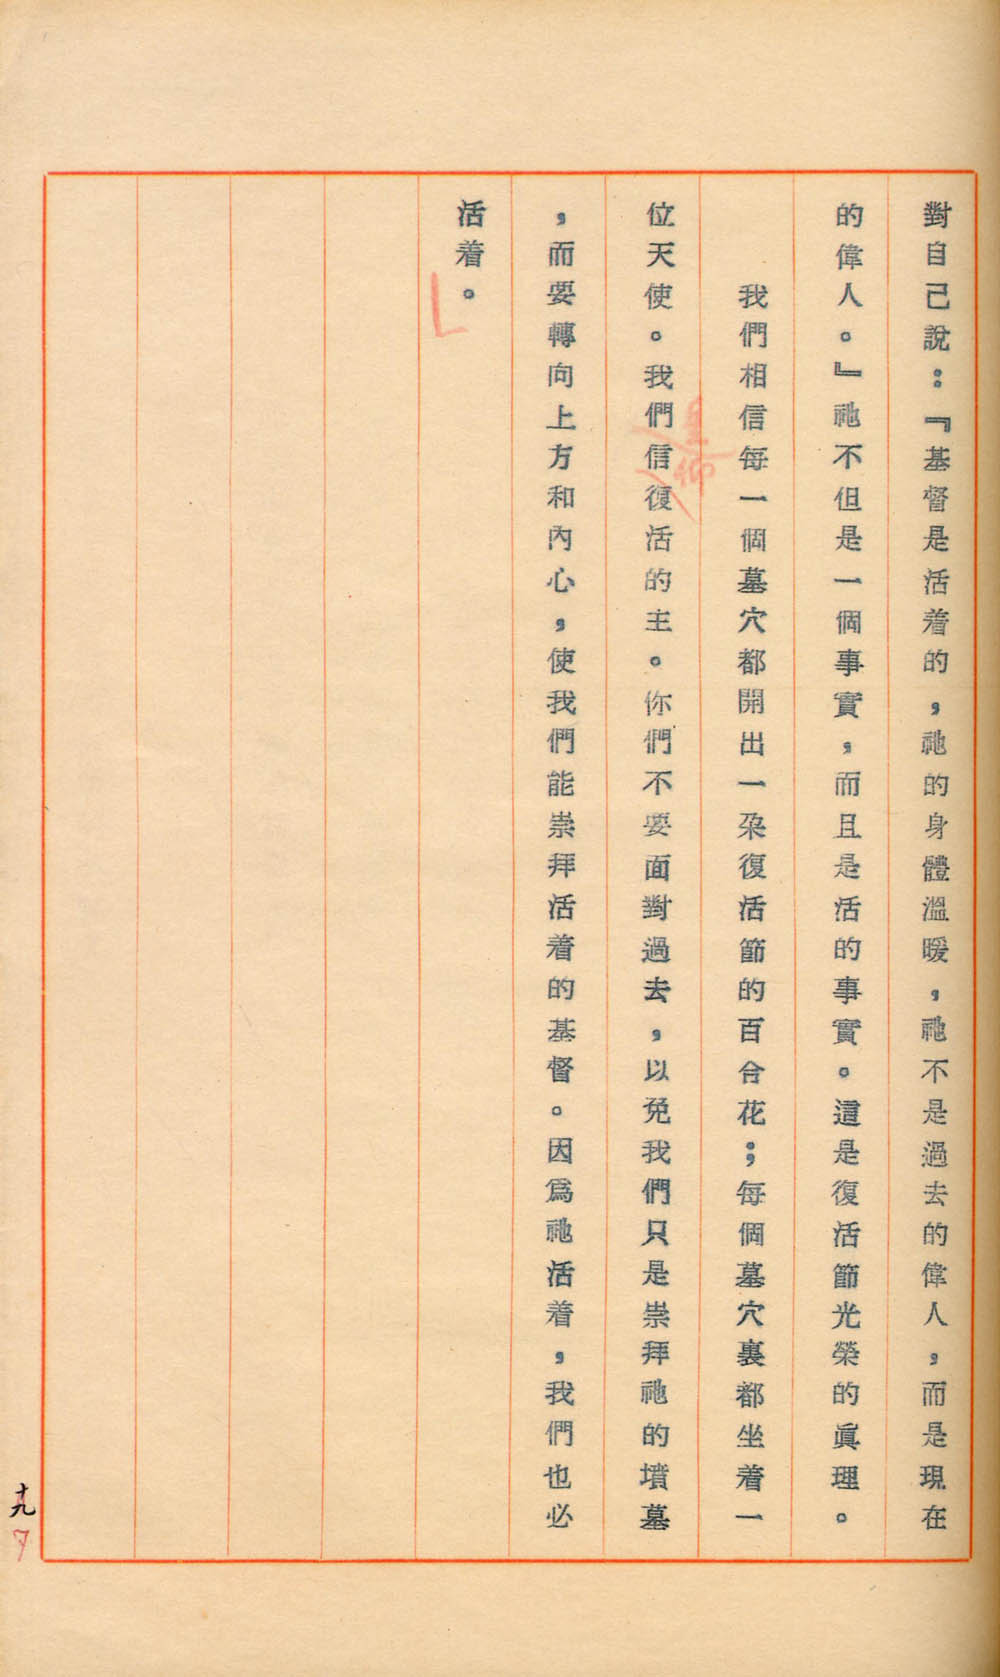 對自己說：『基督是活着的，祂的身體溫暖，祂不是過去的偉人，而是現在
的偉人。』祂不但是一個事實，而且是活的事實。這是復活節光榮的眞理。
我們相信每一個墓穴都開出一朶復活節的百合花；每個墓穴裏都坐着一
仰
位天使。我們信復活的主。你們不要面對過去，以免我們只是崇拜祂的墳墓
，而要轉向上方和內心，使我們能崇拜活着的基督。因爲祂活着，我們也必
活着。
十九
7